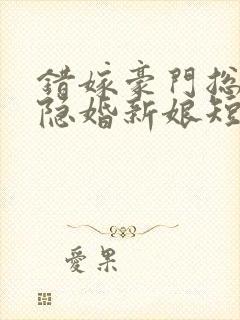 錯嫁豪門总
隐婚新娘短
愛果